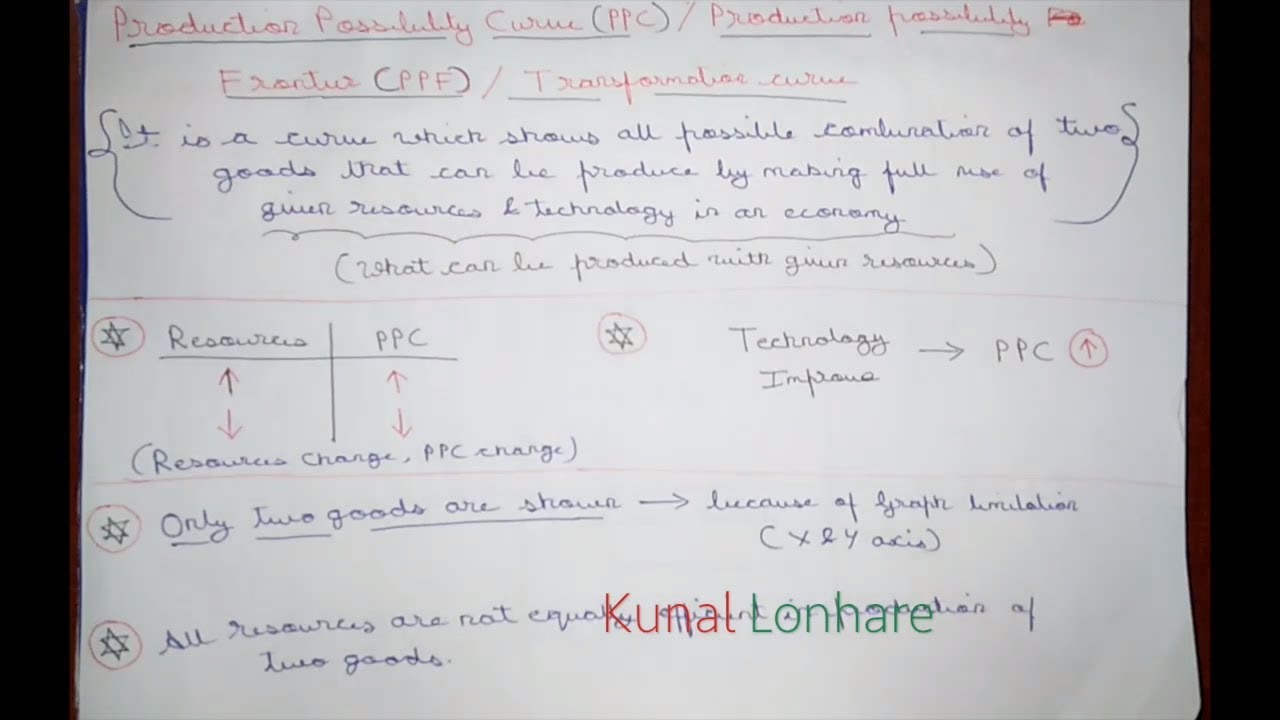 Production Possibility Curve (PPC) / Production possibility
Frontier (PPF) / Transformation curve
It is a curve which shows all possible combination of two
goods that can be produce by making full use of
given resources & technology in an economy
(What can be produced with given resources)
Resources | PPC
↑ | ↑
↓ | ↓
(Resources change, PPC change)
Technology Improve → PPC ↑
Only two goods are shown → because of Graph limitation
(X & Y axis)
All resources are not equally of
two goods.
Kunal Lonhare